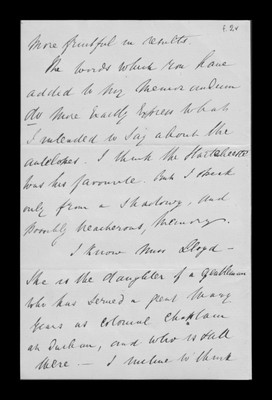 more fruitful in results.
The words which you have
added to my Memorandum
do more exactly express what
I intended to say about the
antelopes. I think the Hartebeest
was his favourite. But I speak
only from a shadowy, and
possibly treacherous, memory.
I know Miss Lloyd –
She is the daughter of a gentleman
who has served a great many
years as colonial chaplain
at Durban, and who is still
there – I incline to think